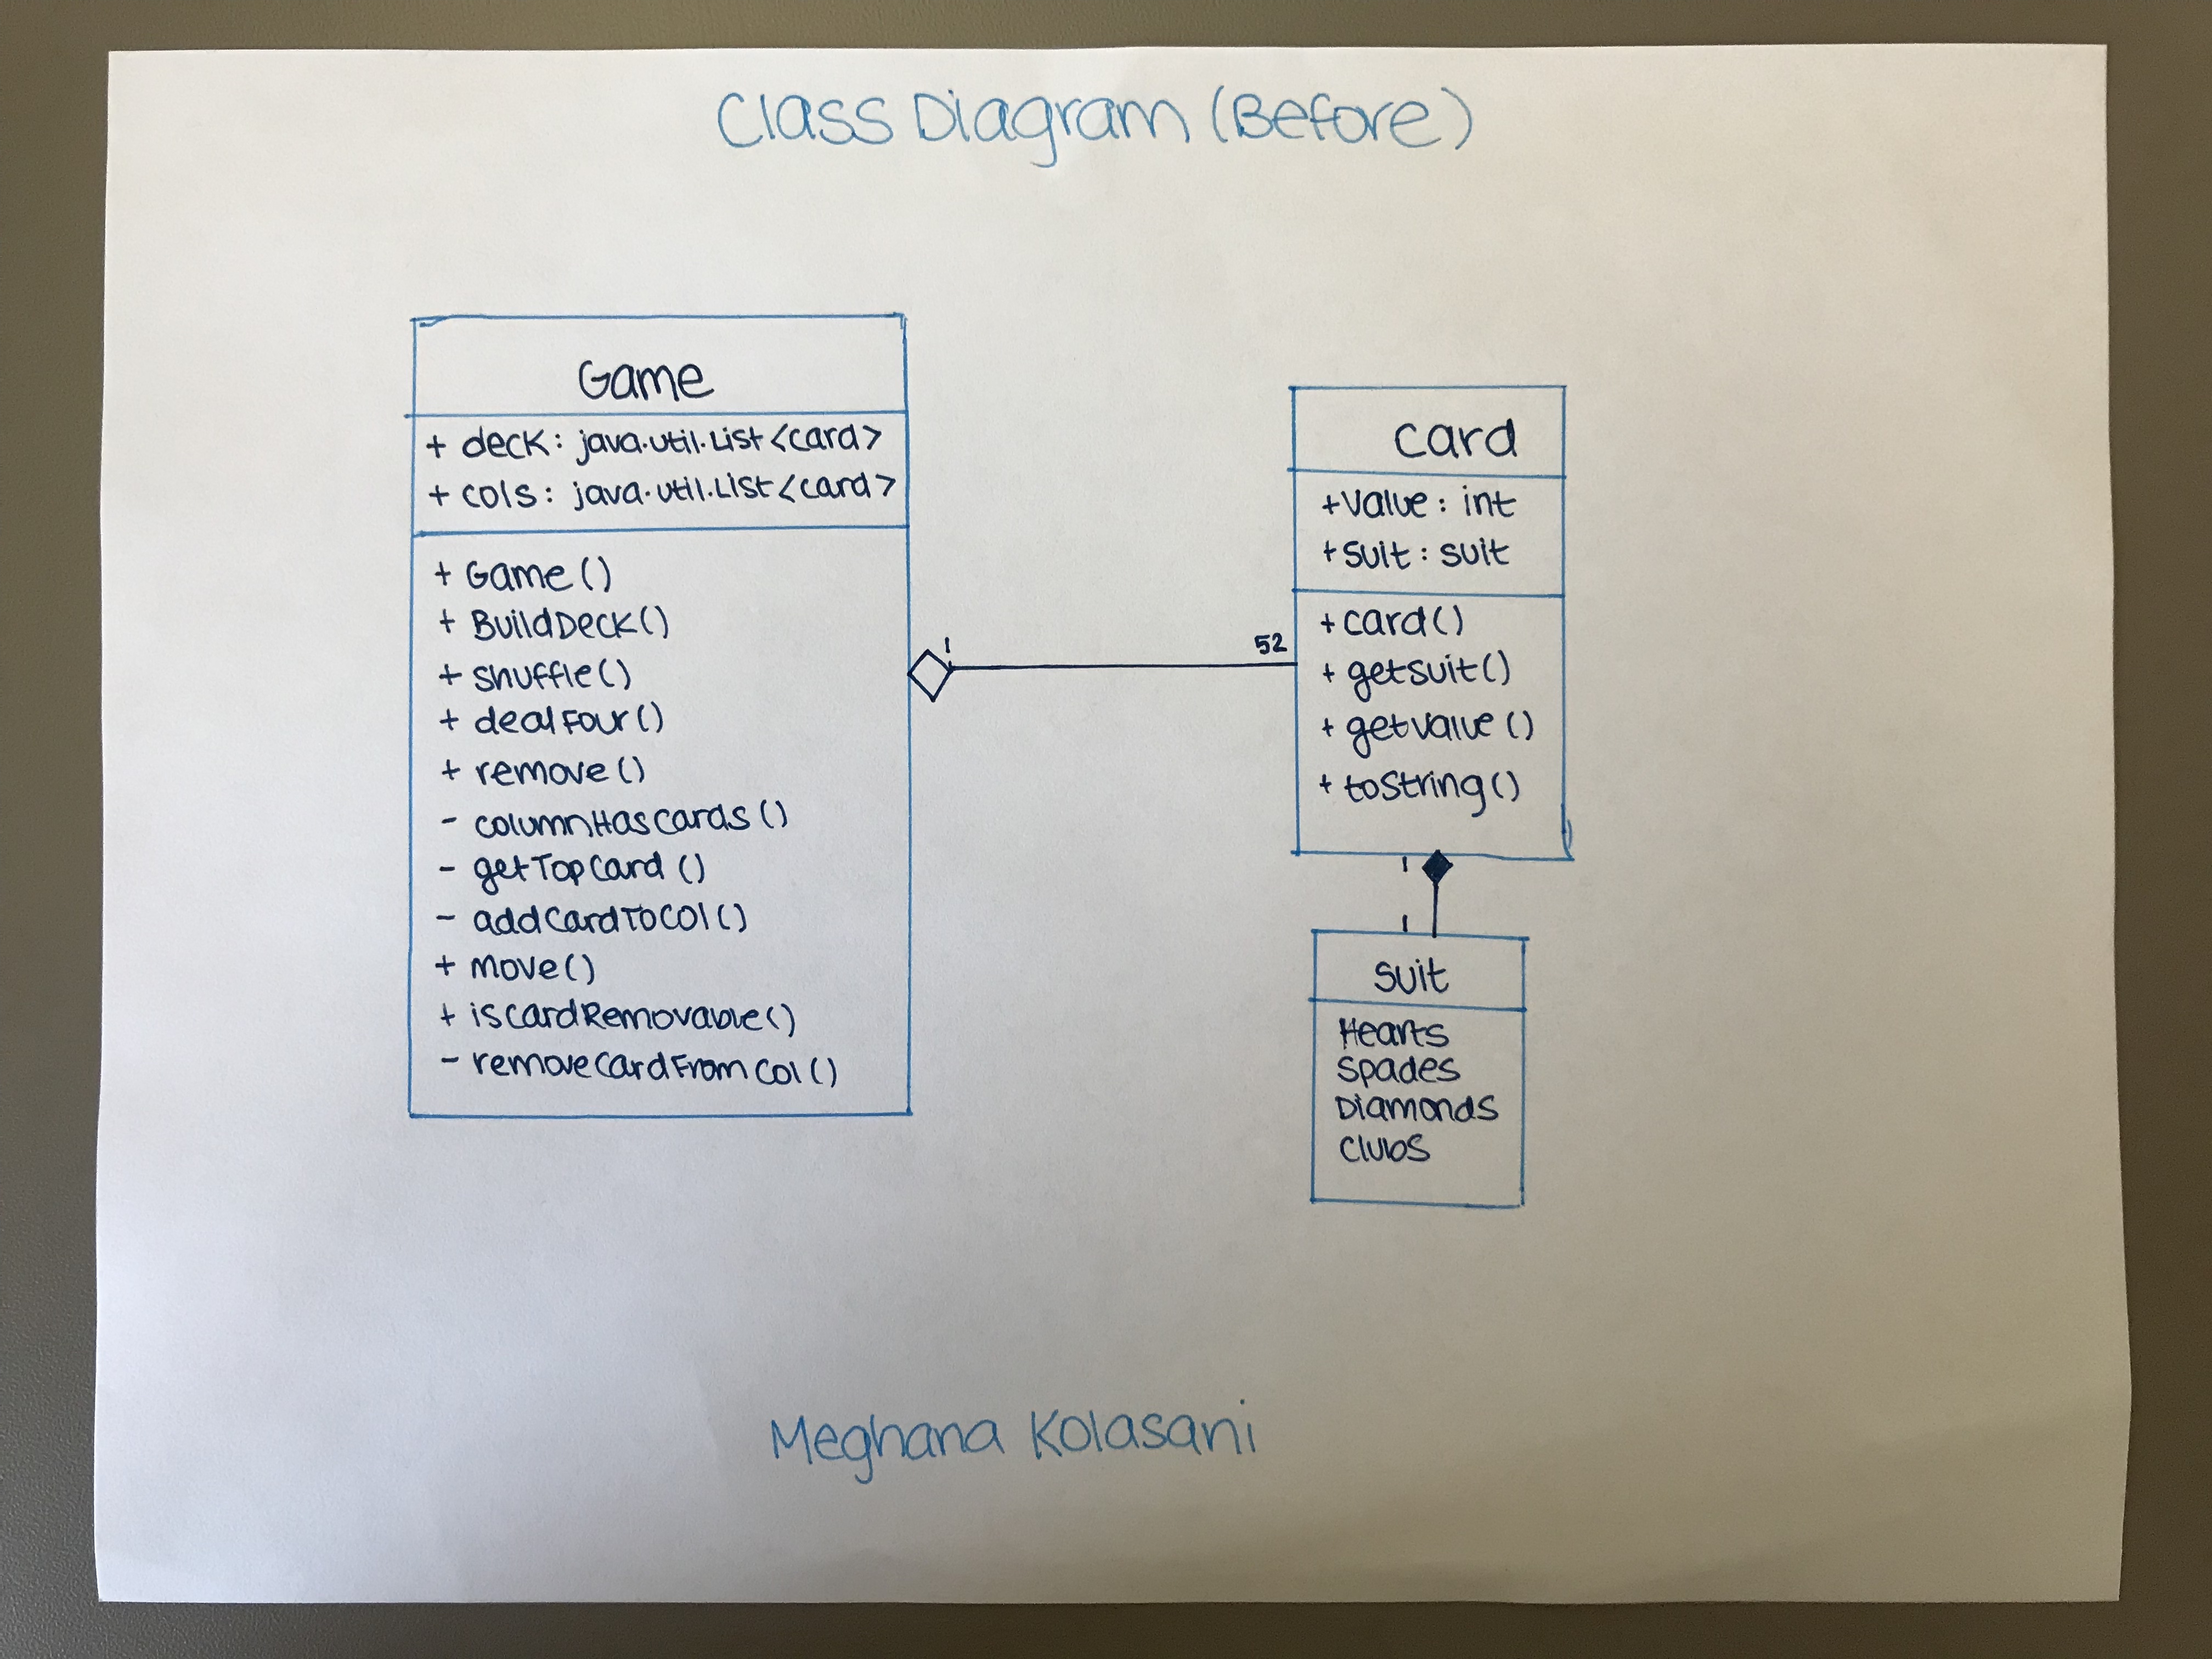 Class Diagram (Before)
Game
+ deck: java.util.List<card>
+ cols: java.util.List<card>
+ Game()
+ BuildDeck()
+ shuffle()
+ dealFour()
+ remove()
- columnHasCards()
- getTopCard()
- addCardToCol()
+ move()
+ iscardRemovable()
- removeCardFromCol()
1
52
card
+value: int
+suit: suit
+card()
+getsuit()
+getvalue()
+toString()
1
1
suit
Hearts
Spades
Diamonds
Clubs
Meghana Kolasani